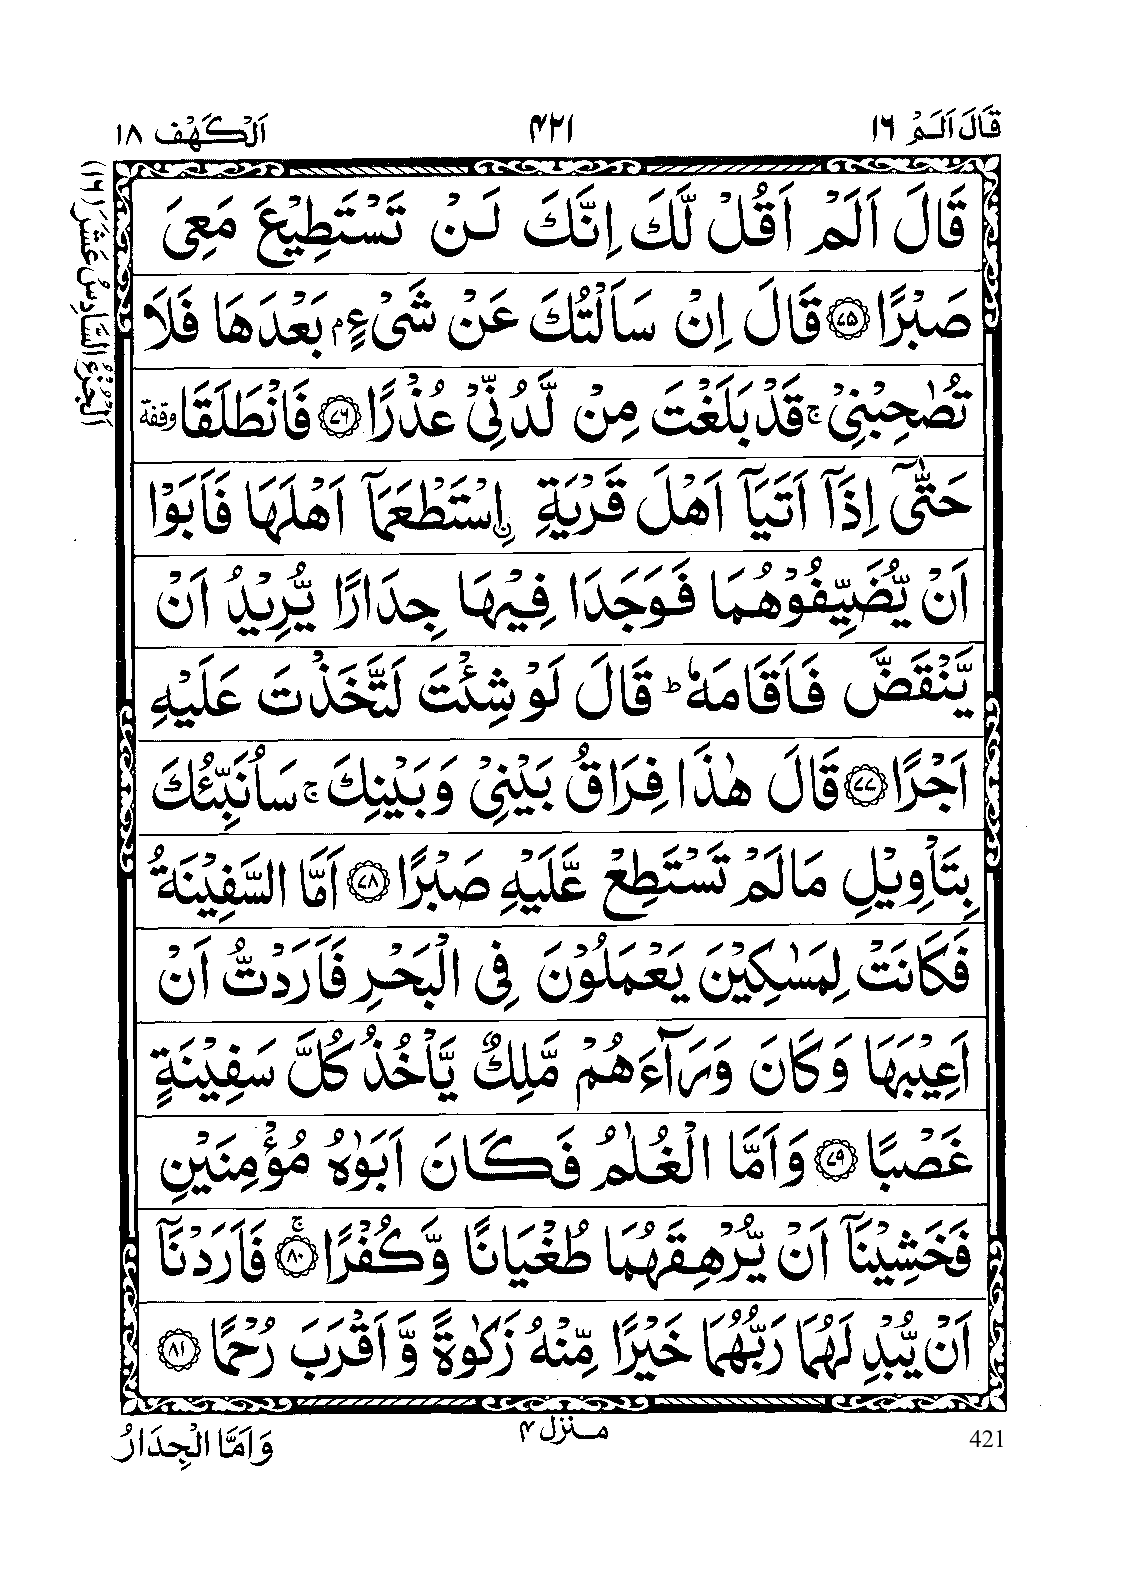 قَالَ اَلَمْ ١٦
٤٢١
اَلْكَهْف ١٨
اَلْجُزْءُ السَّادِسُ عَشَرَ (١٦)
قَالَ اَلَمْ اَقُلْ لَّكَ اِنَّكَ لَنْ تَسْتَطِيْعَ مَعِىَ
صَبْرًا ﴿٧٥﴾ قَالَ اِنْ سَاَلْتُكَ عَنْ شَىْءٍۭ بَعْدَهَا فَلَا
تُصٰحِبْنِىْ ۚ قَدْ بَلَغْتَ مِنْ لَّدُنِّىْ عُذْرًا ﴿٧٦﴾ فَانْطَلَقَا وقفة
حَتّٰىٓ اِذَآ اَتَيَآ اَهْلَ قَرْيَةِ ࣙاسْتَطْعَمَآ اَهْلَهَا فَاَبَوْا
اَنْ يُّضَيِّفُوْهُمَا فَوَجَدَا فِيْهَا جِدَارًا يُّرِيْدُ اَنْ
يَّنْقَضَّ فَاَقَامَهٗ ؕ قَالَ لَوْ شِئْتَ لَتَّخَذْتَ عَلَيْهِ
اَجْرًا ﴿٧٧﴾ قَالَ هٰذَا فِرَاقُ بَيْنِىْ وَبَيْنِكَ ۚ سَاُنَبِّئُكَ
بِتَاْوِيْلِ مَالَمْ تَسْتَطِعْ عَّلَيْهِ صَبْرًا ﴿٧٨﴾ اَمَّا السَّفِيْنَةُ
فَكَانَتْ لِمَسٰكِيْنَ يَعْمَلُوْنَ فِى الْبَحْرِ فَاَرَدْتُّ اَنْ
اَعِيْبَهَا وَكَانَ وَرَآءَهُمْ مَّلِكٌ يَّاْخُذُ كُلَّ سَفِيْنَةٍ
غَصْبًا ﴿٧٩﴾ وَاَمَّا الْغُلٰمُ فَكَانَ اَبَوٰهُ مُؤْمِنَيْنِ
فَخَشِيْنَآ اَنْ يُّرْهِقَهُمَا طُغْيَانًا وَّكُفْرًا ﴿٨٠﴾ ۚ فَاَرَدْنَآ
اَنْ يُّبْدِلَهُمَا رَبُّهُمَا خَيْرًا مِّنْهُ زَكٰوةً وَّاَقْرَبَ رُحْمًا ﴿٨١﴾
منزل ٤
وَاَمَّا الْجِدَارُ
421